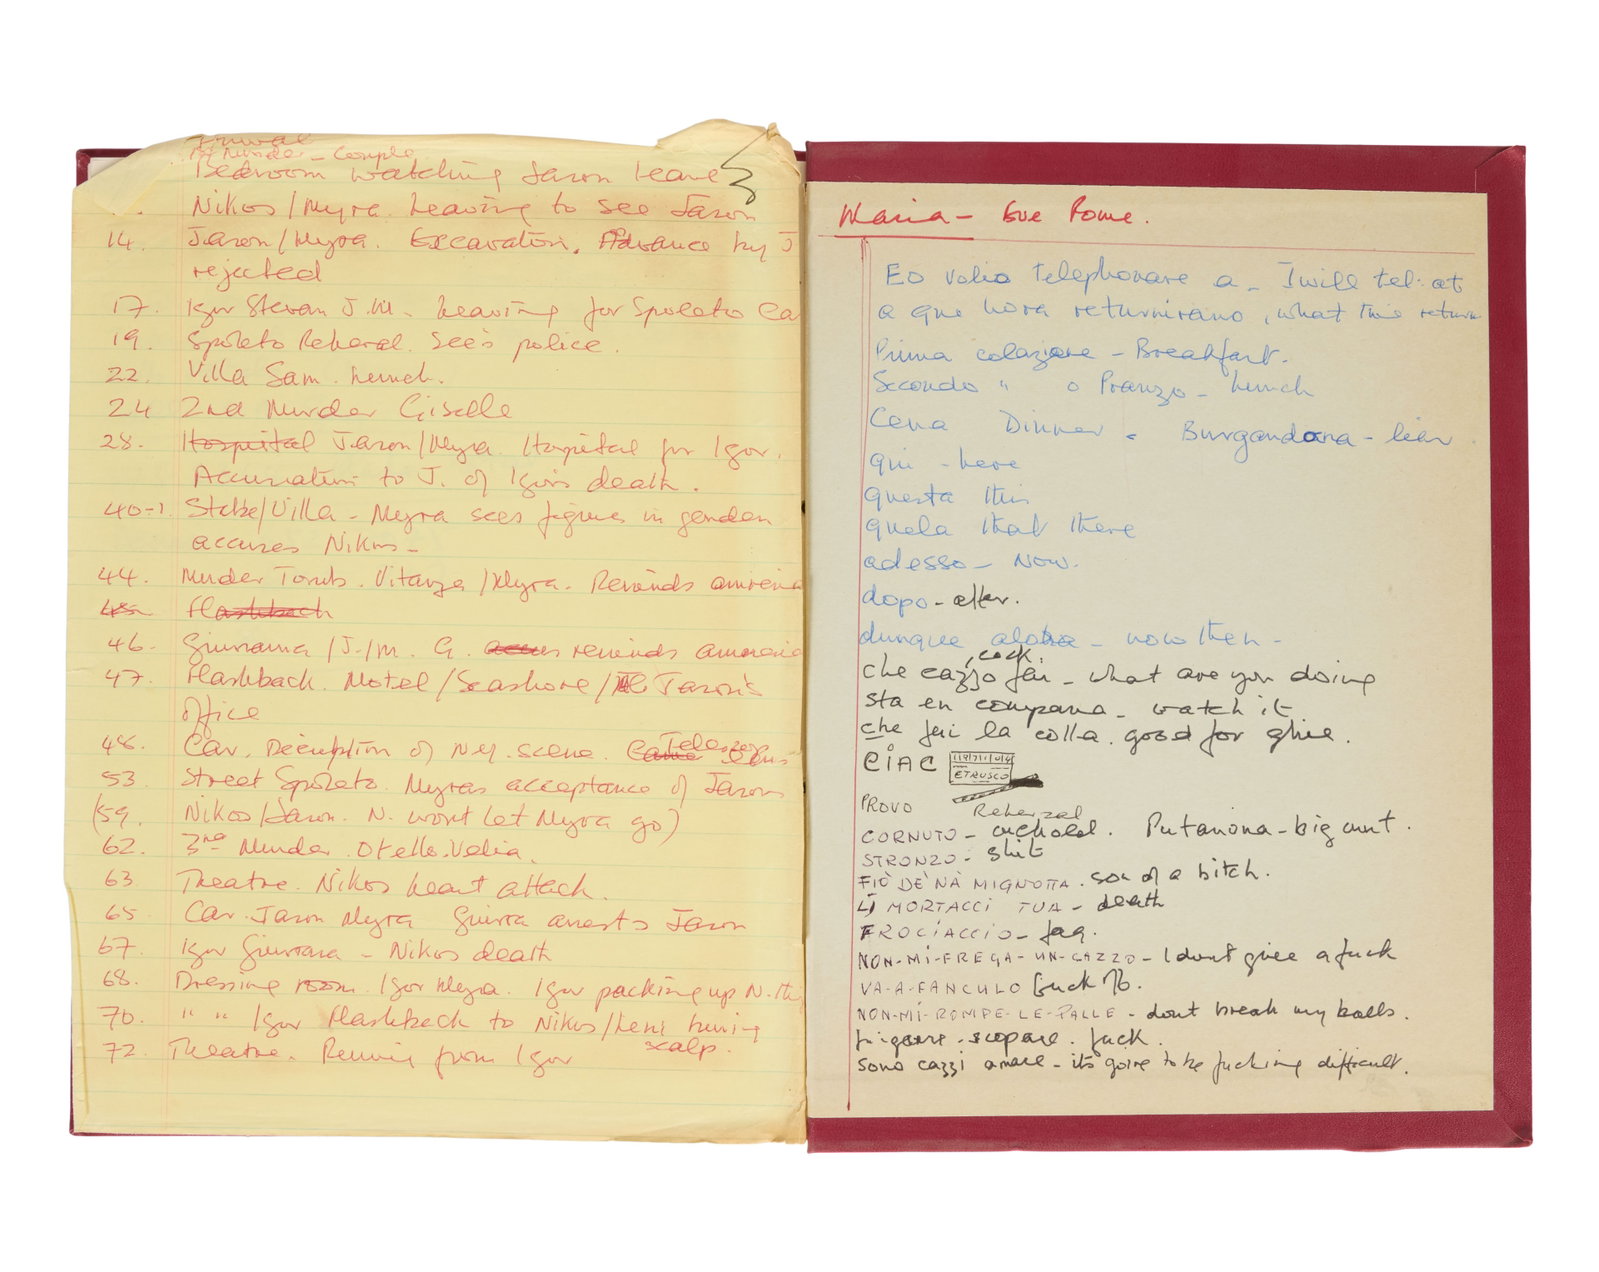 Arrival
1st Murder - Couple
Bedroom watching Jason leave
Nikos/Myra. Leaving to see Jason
14. Jason/Myra. Excavation. Advance by J
rejected
17. Igor Stevan J.M. - Leaving for Spoleto Ca
19. Spoleto Rehersal. See's police.
22. Villa Sam. Lunch.
24 2nd Murder Giselle
28. Hospital Jason/Myra. Hospital for Igor.
Accusation to J. of Igors death.
40-1. State/Villa - Myra sees figures in garden
accuses Nikos -
44. Murder Tomb. Vitanza/Myra. Reminds
Flashback
46. Giuranna/J./M. G. reminds
47. Flashback. Motel/Seashore/ Jason's
office
48. Car. Description of N.Y. scene. 
53 Street Spoleto. Myras acceptance of Jasons
(59. Nikos/Jason. N. wont let Myra go)
62. 3rd Murder. Otello. Velia.
63 Theatre. Nikos heart attack.
65 Car. Jason Myra arrests Jason
67. Igor Giuranna - Nikos death
68. Dressing room. Igor Myra. Igor packing up N.
70. " " Igor Flashback to Nikos/Leni
scalp.
72. Theatre. from Igor
Maria - Eve Rome.
Eo volio telephonare a - I will tel. at
a que hora returnirano, what time return
Prima colazione - Breakfast.
Secondo " o Pranzo - Lunch
Cena Dinner.
qui - here
questa this
quela that there
adesso - Now.
dopo - after.
dunque alora - now then -
, cock.
che cazzo fai - what are you doing
sta en compana - watch it
che fai la colla. good for glue.
CIAC
ETRUSCO
PROVO Reherzal
CORNUTO - cuckold. Putanona - big cunt.
STRONZO - shit
FIÓ DE'NA MIGNOTTA. son of a bitch.
LI MORTACCI TUA - death
FROCIACCIO - fag.
NON-MI-FREGA-UN-CAZZO - I dont give a fuck
VA-A-FANCULO fuck off.
NON-MI-ROMPE-LE-PALLE - dont break my balls.
scopare. fuck.
sono cazzi amare - its going to be fucking difficult.